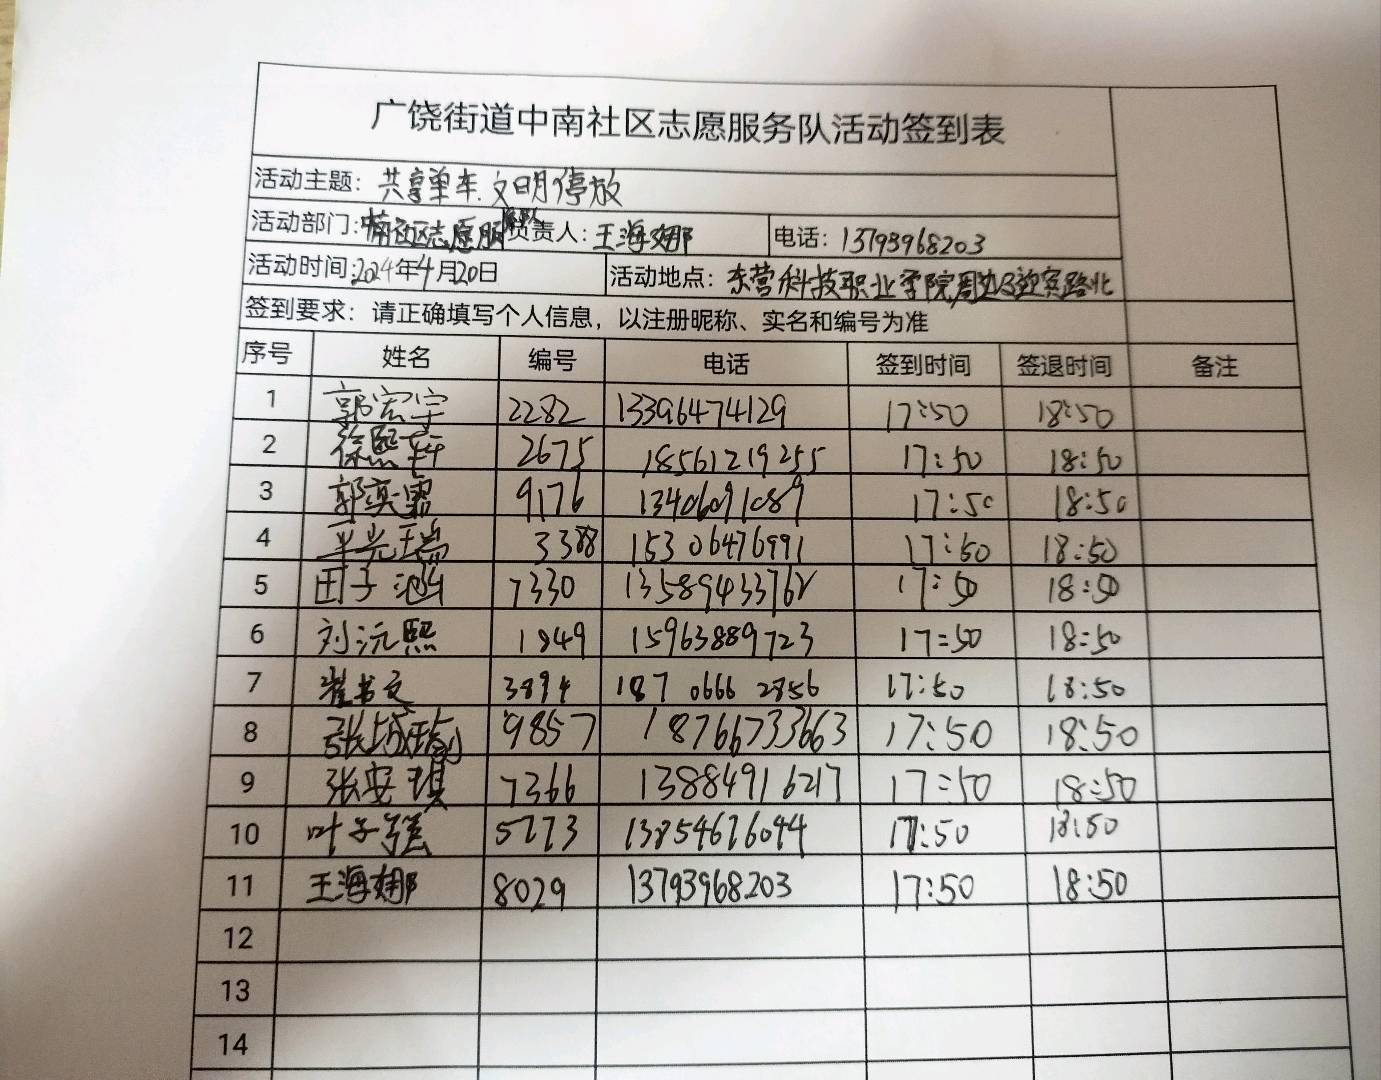 广饶街道中南社区志愿服务队活动签到表
活动主题：共享单车.文明停放
活动部门：中南社区志愿服务队 负责人：王海娜 电话：13793968203
活动时间：2024年4月20日 活动地点：东营科技职业学院周边及迎宾路北
签到要求：请正确填写个人信息，以注册昵称、实名和编号为准
序号 姓名 编号 电话 签到时间 签退时间 备注
1 郭宏宇 2282 13396474129 17:50 18:50
2 徐熙轩 2675 18561219255 17:50 18:50
3 郭奕霏 9176 13406091089 17:50 18:50
4 3388 15306476991 17:50 18:50
5 田子涵 7330 13589433762 17:50 18:50
6 刘沅熙 1849 15963889723 17:50 18:50
7 崔书文 3894 187 0666 2856 17:50 18:50
8 张 9857 18766733663 17:50 18:50
9 张安琪 7366 13884916217 17:50 18:50
10 叶子强 5773 13854676044 17:50 18:50
11 王海娜 8029 13793968203 17:50 18:50
12
13
14